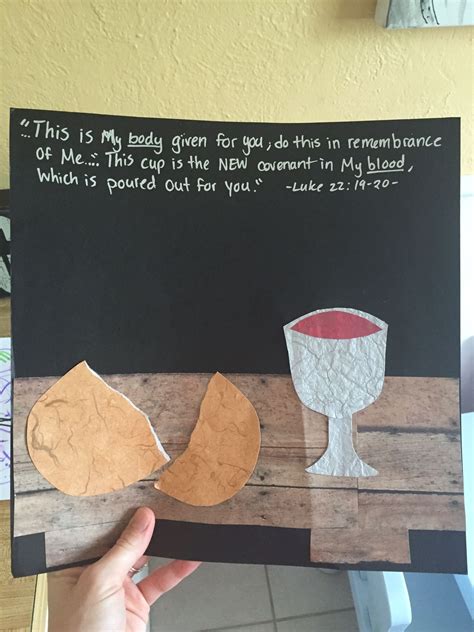 "...This is My body given for you; do this in remembrance
of Me...". This cup is the NEW covenant in My blood,
which is poured out for you." -Luke 22:19-20-